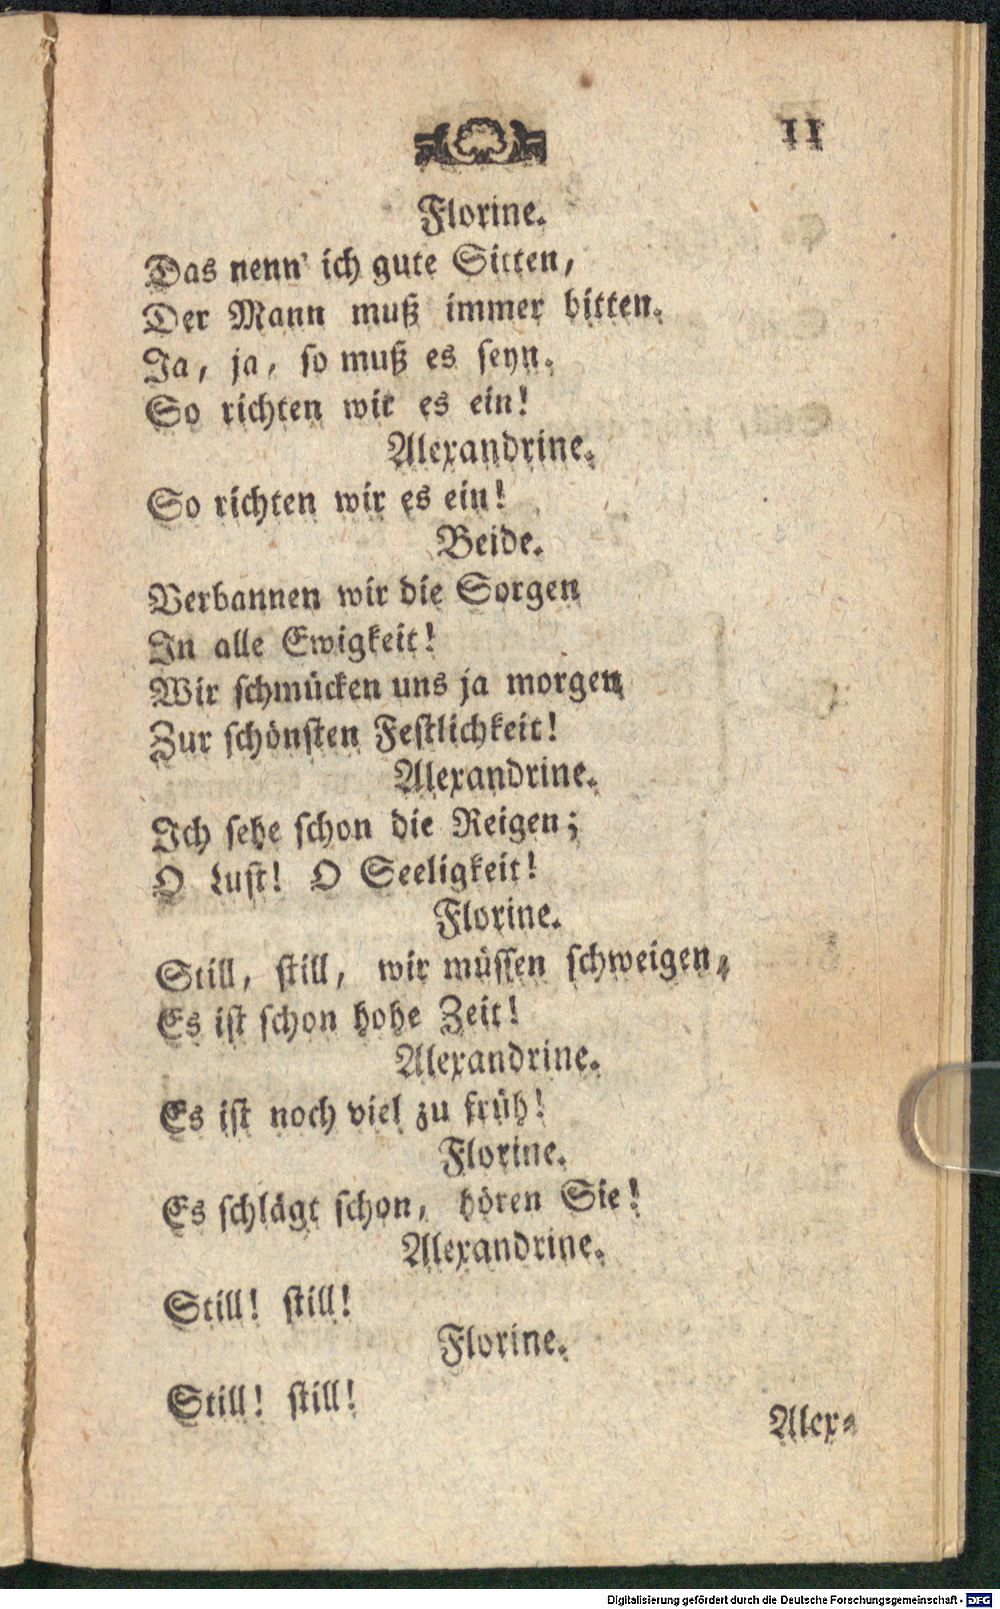 11
Florine.
Das nenn' ich gute Sitten,
Der Mann muß immer bitten.
Ja, ja, so muß es seyn.
So richten wir es ein!
Alexandrine.
So richten wir es ein!
Beide.
Verbannen wir die Sorgen
In alle Ewigkeit!
Wir schmücken uns ja morgen
Zur schönsten Festlichkeit!
Alexandrine.
Ich sehe schon die Reigen;
O Lust! O Seeligkeit!
Florine.
Still, still, wir müssen schweigen,
Es ist schon hohe Zeit!
Alexandrine.
Es ist noch viel zu früh!
Florine.
Es schlägt schon, hören Sie!
Alexandrine.
Still! still!
Florine.
Still! still!
Alex-
Digitalisierung gefördert durch die Deutsche Forschungsgemeinschaft - DFG